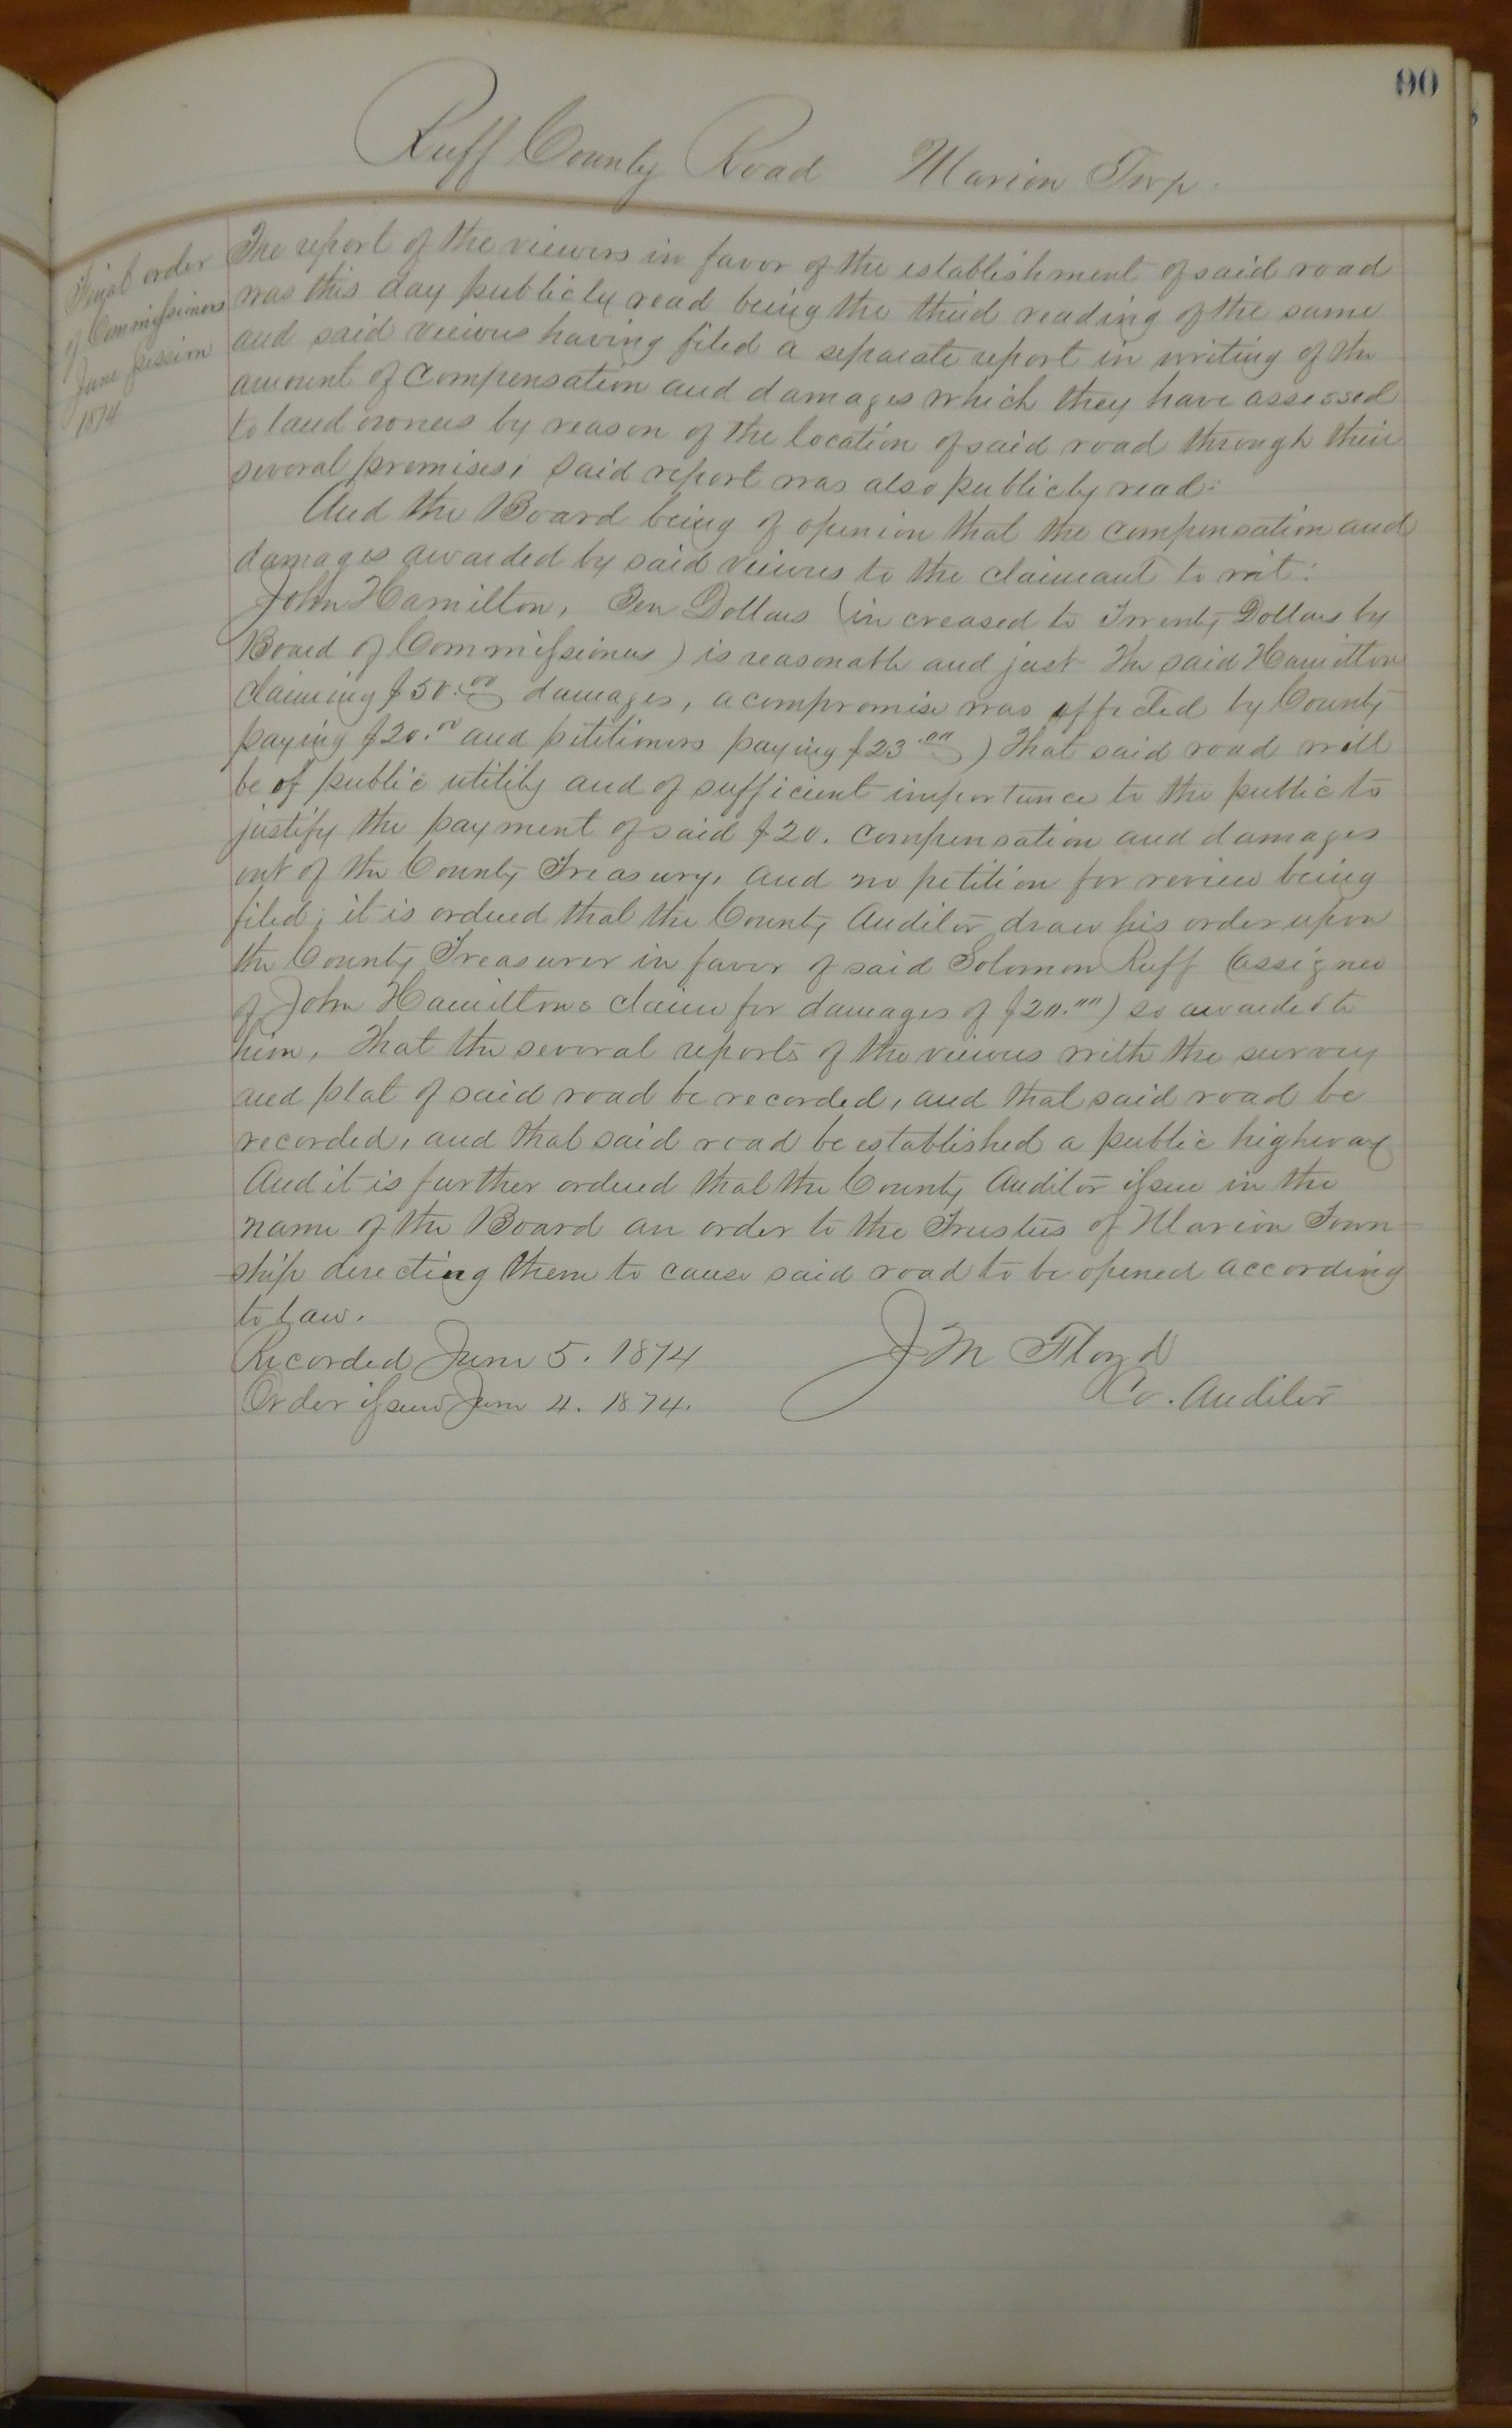 90
Ruff County Road Marion Twp.
Final order
of Commissioners
June session
1874
The report of the viewers in favor of the establishment of said road
was this day publicly read being the third reading of the same
and said viewers having filed a separate report in writing of the
amount of compensation and damages which they have assessed
to land owners by reason of the location of said road through their
several premises; said report was also publicly read:
And the Board being of opinion that the compensation and
damages awarded by said viewers to the claimant to wit:
John Hamilton, Ten Dollars (increased to Twenty Dollars by
Board of Commissioners) is reasonable and just The said Hamilton
claiming $50.00 damages, a compromise was effected by County
paying $20.00 and petitioners paying $23.00) That said road will
be of public utility and of sufficient importance to the public to
justify the payment of said $20. compensation and damages
out of the County Treasury, and no petition for review being
filed; it is ordered that the County Auditor draw his order upon
the County Treasurer in favor of said Solomon Ruff (assignee
of John Hamiltons claim for damages of $20.00) so awarded to
him, That the several reports of the viewers with the survey
and plat of said road be recorded, and that said road be
recorded, and that said road be established a public highway
And it is further ordered that the County Auditor issue in the
name of the Board an order to the Trustees of Marion Town-
-ship directing them to cause said road to be opened according
to law.
Recorded June 5. 1874 J M Floyd
Order issued June 4. 1874. Co. Auditor